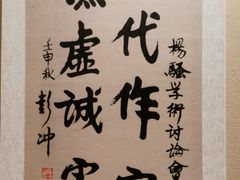 楊騷学術討論會
代作
虛誠
壬申秋
彭冲